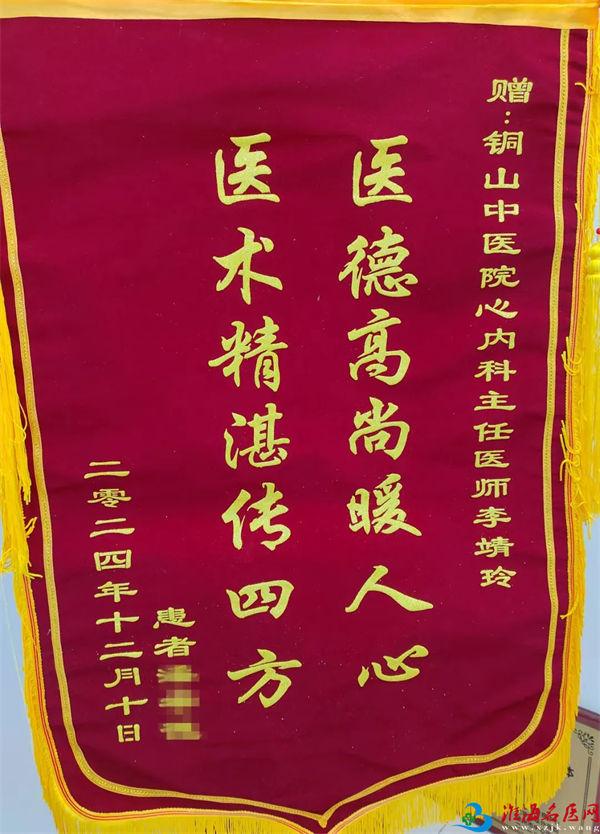 赠:铜山中医院心内科主任医师李靖玲
医德高尚暖人心
医术精湛传四方
患者
二零二四年十二月十日
淮海名医网
www.xzjk.wang